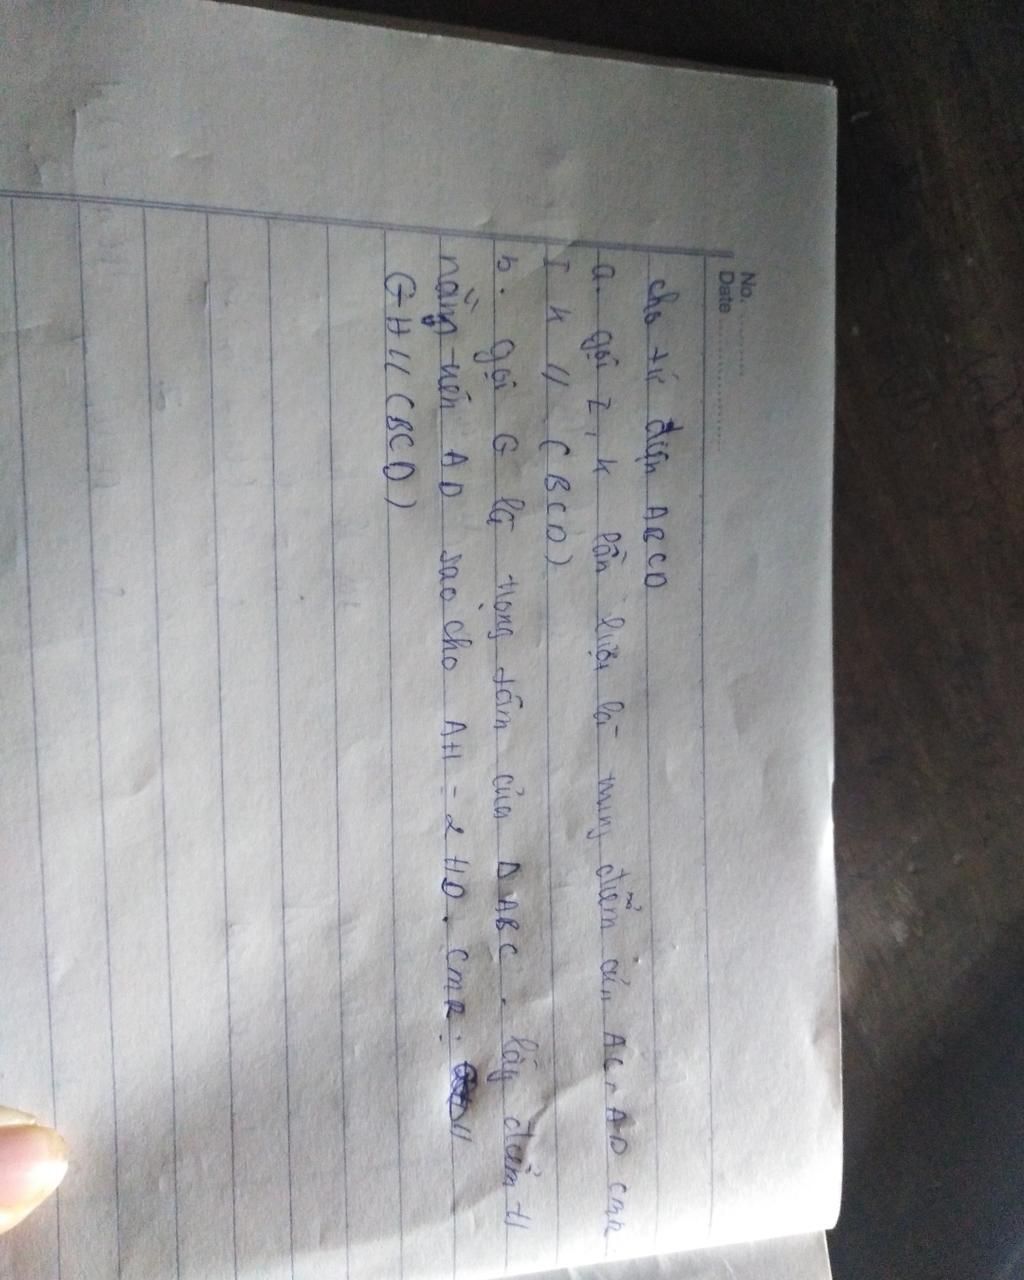 No. ............
Date ........................
cho tứ diện ABCD
a. gọi I, K lần lượt là trung điểm của AC, AD CMR
IK // (BCD)
b. gọi G là trọng tâm của ΔABC. lấy điểm H
nằm trên AD sao cho AH = 2HD. CMR:
GH // (BCD)